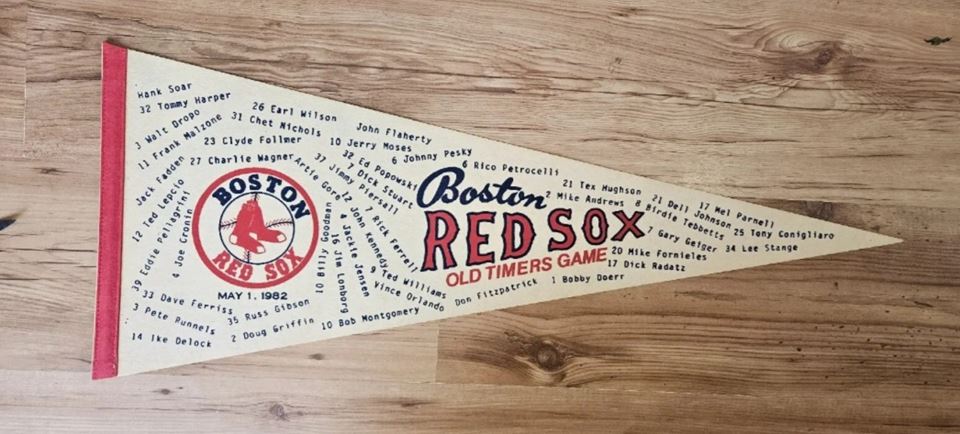 Hank Soar
32 Tommy Harper
3 Walt Dropo
11 Frank Malzone
26 Earl Wilson
31 Chet Nichols
23 Clyde Follmer
27 Charlie Wagner
John Flaherty
10 Jerry Moses
6 Johnny Pesky
32 Ed Popowski
7 Dick Stuart
37 Jimmy Piersall
Artie Gore
6 Rico Petrocelli
21 Tex Hughson
2 Mike Andrews
8 Birdie Tebbetts
21 Dell Johnson
17 Mel Parnell
25 Tony Conigliaro
7 Gary Geiger
34 Lee Stange
20 Mike Fornieles
17 Dick Radatz
1 Bobby Doerr
Don Fitzpatrick
Boston
RED SOX
OLD TIMERS GAME
Jack Fadden
12 Ted Lepcio
39 Eddie Pellagrini
4 Joe Cronin
BOSTON
RED SOX
MAY 1, 1982
10 Billy Goodman
16 Jim Lonborg
4 Jackie Jensen
12 John Kennedy
7 Rick Ferrell
9 Ted Williams
Vince Orlando
33 Dave Ferriss
35 Russ Gibson
3 Pete Runnels
2 Doug Griffin
10 Bob Montgomery
14 Ike Delock